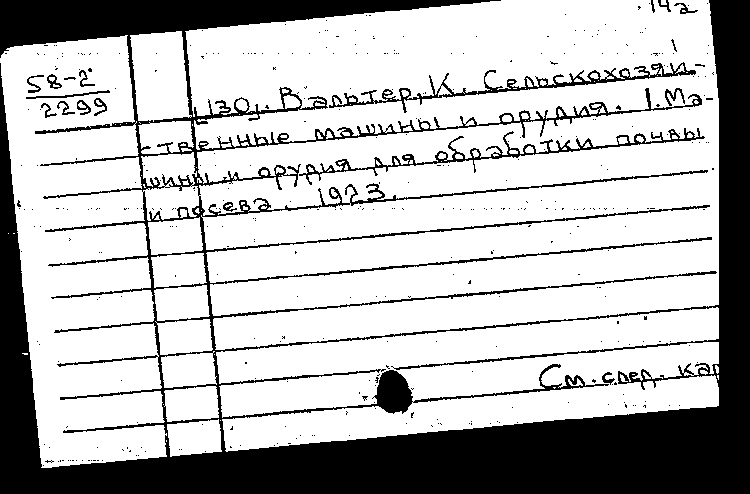 14а
58-2
2299
[130]. Вальтер, К. Сельскохозяй-
ственные машины и орудия. 1. Ма-
шины и орудия для обработки почвы
и посева. 1923.
См. след. кар